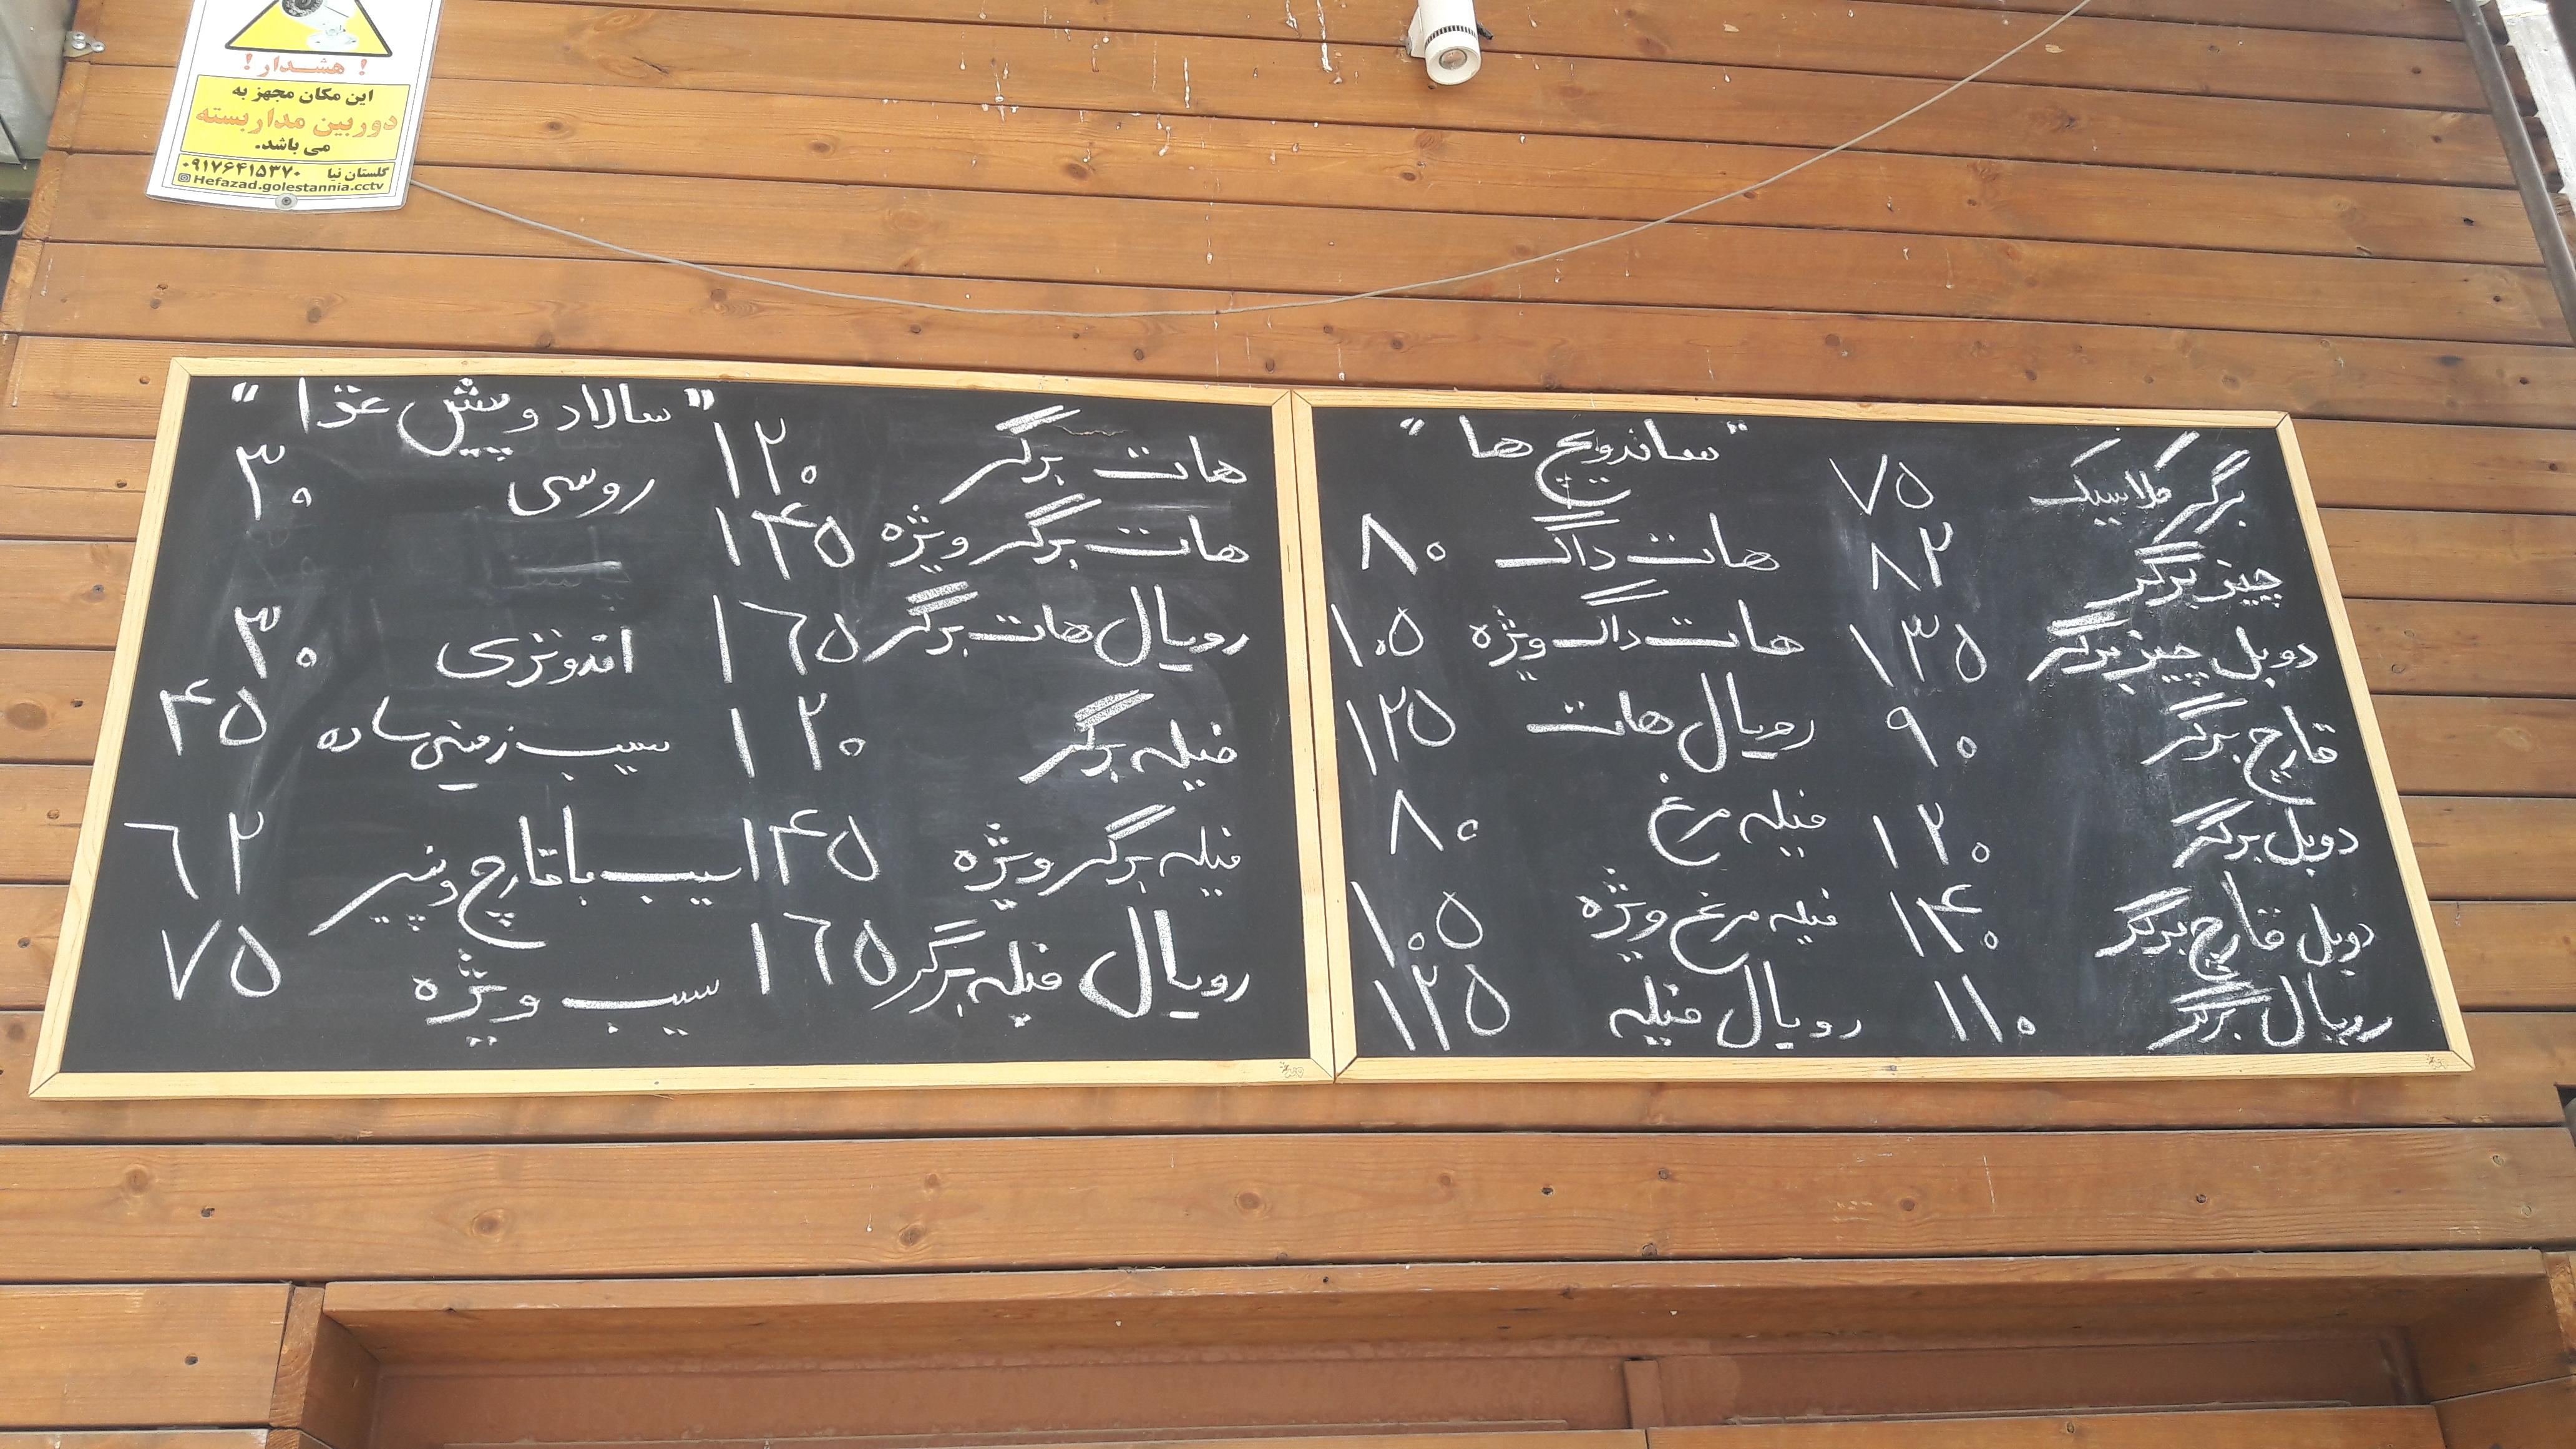 ! هشدار !
این مکان مجهز به
دوربین مداربسته
می باشد.
گلستان نیا ۰۹۱۷۶۴۱۵۳۷۰
Hefazad.golestannia.cctv
برگر کلاسیک ۷۵
چیز برگر ۸۲
دوبل چیز برگر ۱۳۵
قارچ برگر ۹۰
دوبل برگر ۱۲۰
دوبل قارچ برگر ۱۴۰
رویال برگر ۱۱۰
"ساندویچ ها"
هات داگ ۸۰
هات داگ ویژه ۱۰۵
رویال هات ۱۲۵
فیله مرغ ۸۰
فیله مرغ ویژه ۱۰۵
رویال فیله ۱۲۵
هات برگر ۱۲۰
هات برگر ویژه ۱۴۵
رویال هات برگر ۱۶۵
فیله برگر ۱۲۰
فیله برگر ویژه ۱۴۵
رویال فیله برگر ۱۶۵
"سالاد و پیش غذا"
روسی ۳۰
اندونزی ۳۰
سیب زمینی ساده ۴۵
سیب با قارچ و پنیر ۶۲
سیب ویژه ۷۵